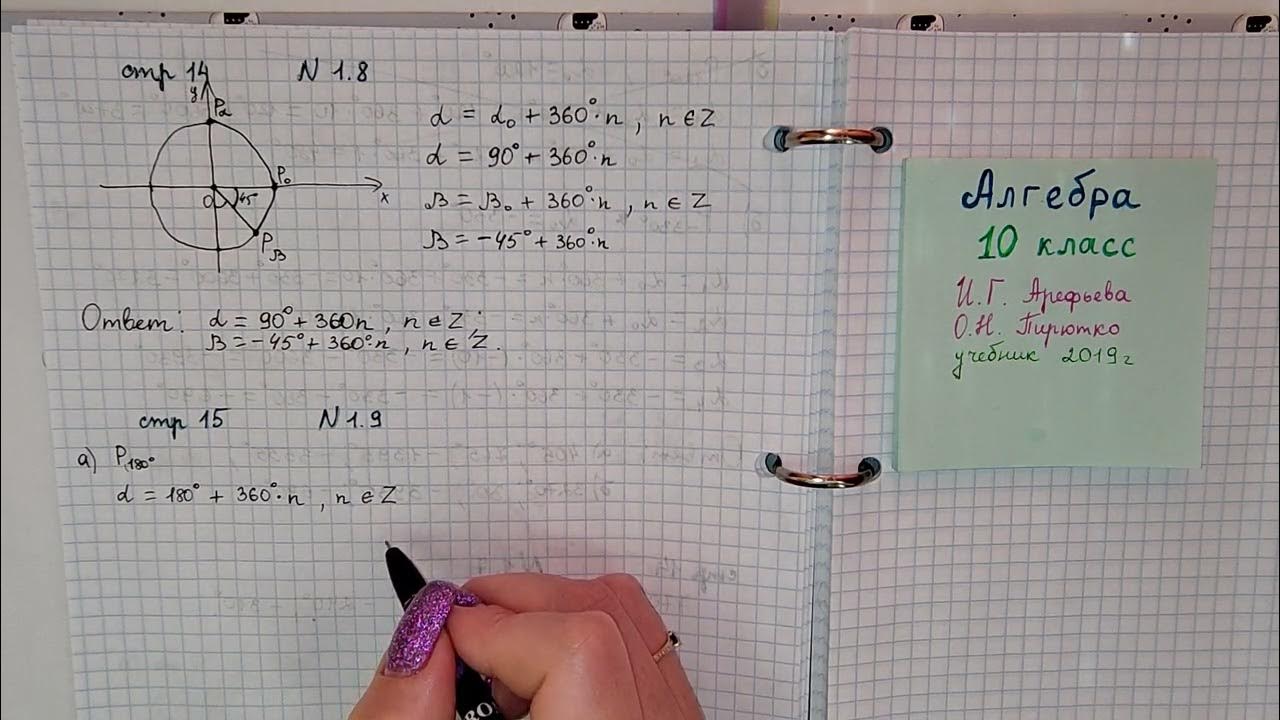 стр 14 N 1.8
y
Pα
P₀
O
45
x
Pβ
α = α₀ + 360°·n , n ∈ Z
α = 90° + 360°·n
β = β₀ + 360°·n , n ∈ Z
β = -45° + 360°·n
Ответ: α = 90° + 360n , n ∈ Z;
β = -45° + 360°·n , n ∈ Z.
стр 15 N 1.9
а) P₁₈₀°
α = 180° + 360°·n , n ∈ Z
Алгебра
10 класс
И.Г. Арефьева
О.Н. Пирютко
учебник 2019г